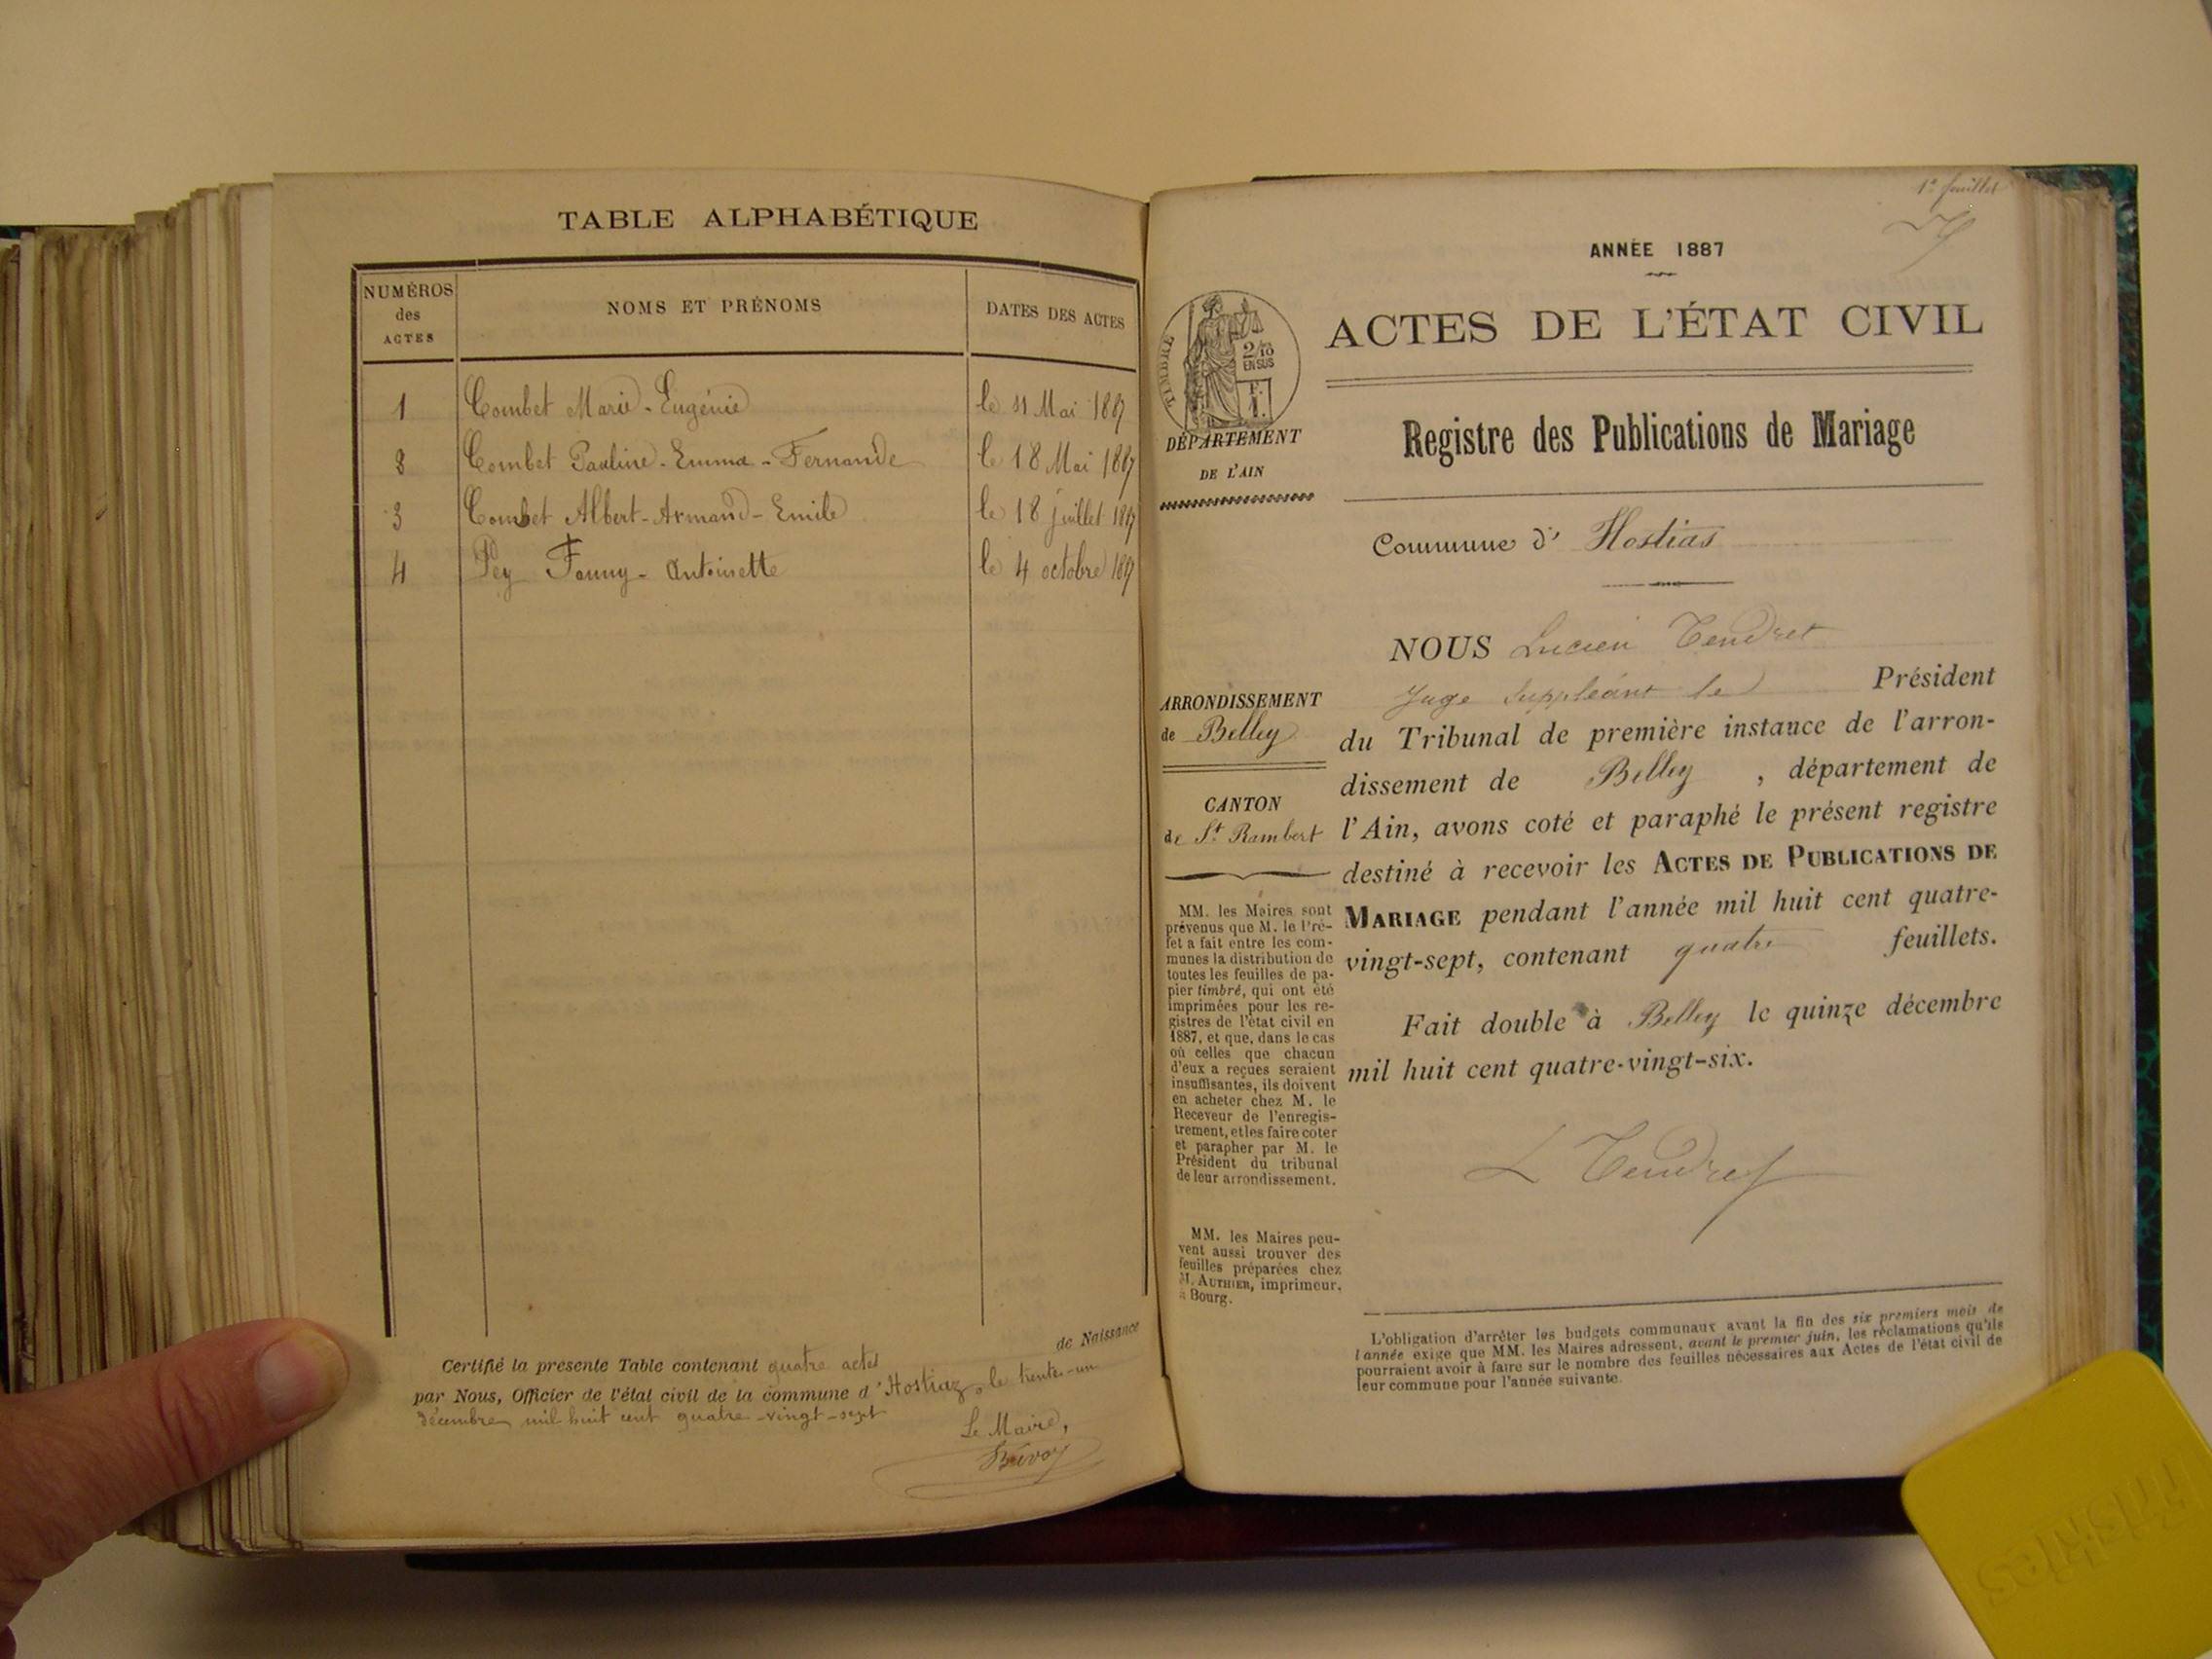 TABLE ALPHABÉTIQUE
NUMÉROS
des
ACTES
NOMS ET PRÉNOMS
DATES DES ACTES
1 Combet Marie-Eugénie le 11 Mai 1887
2 Combet Pauline-Emma-Fernande le 18 Mai 1887
3 Combet Albert-Armand-Emile le 18 juillet 1887
4 Pey Fanny-Antoinette le 4 octobre 1887
Certifié la présente Table contenant quatre actes de Naissance
par Nous, Officier de l'état civil de la commune d'Hostiaz, le trente-un
décembre mil huit cent quatre-vingt-sept
Le Maire,
1er feuillet
ANNÉE 1887
ACTES DE L'ÉTAT CIVIL
Registre des Publications de Mariage
Commune d' Hostias
TIMBRE
2/10
EN SUS
DÉPARTEMENT
DE L'AIN
ARRONDISSEMENT
de Belley
CANTON
de St Rambert
MM. les Maires sont
prévenus que M. le Pré-
fet a fait entre les com-
munes la distribution de
toutes les feuilles de pa-
pier timbré, qui ont été
imprimées pour les re-
gistres de l'état civil en
1887, et que, dans le cas
où celles que chacun
d'eux a reçues seraient
insuffisantes, ils doivent
en acheter chez M. le
Receveur de l'enregis-
trement, et les faire coter
et parapher par M. le
Président du tribunal
de leur arrondissement.
MM. les Maires peu-
vent aussi trouver des
feuilles préparées chez
M. AUTHIER, imprimeur,
à Bourg.
NOUS Lucien Tendret
Juge Suppléant le Président
du Tribunal de première instance de l'arron-
dissement de Belley, département de
l'Ain, avons coté et paraphé le présent registre
destiné à recevoir les ACTES DE PUBLICATIONS DE
MARIAGE pendant l'année mil huit cent quatre-
vingt-sept, contenant quatre feuillets.
Fait double à Belley le quinze décembre
mil huit cent quatre-vingt-six.
L Tendret
L'obligation d'arrêter les budgets communaux avant la fin des six premiers mois de
l'année exige que MM. les Maires adressent, avant le premier juin, les réclamations qu'ils
pourraient avoir à faire sur le nombre des feuilles nécessaires aux Actes de l'état civil de
leur commune pour l'année suivante.